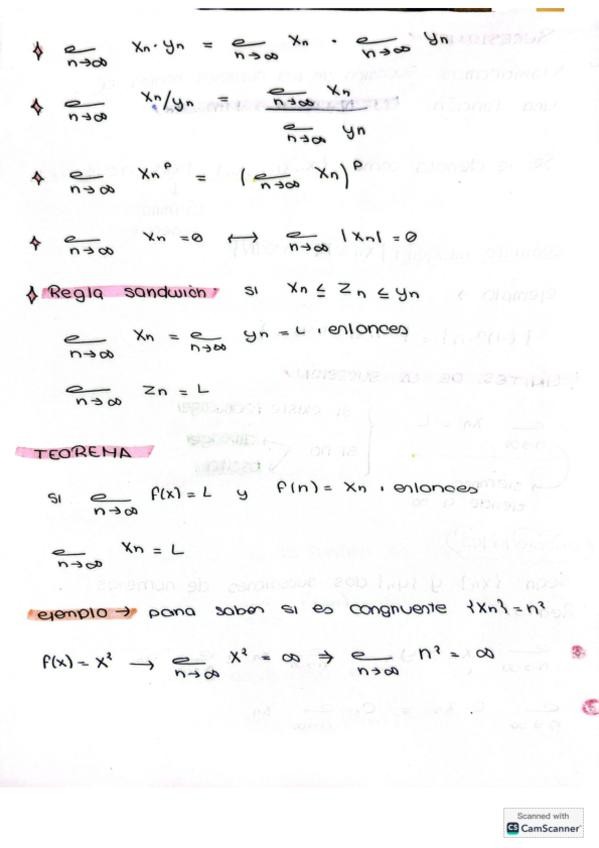 ✧ ℓ n→∞ Xn · yn = ℓ n→∞ Xn · ℓ n→∞ yn
✧ ℓ n→∞ Xn/yn = ℓ n→∞ Xn / ℓ n→∞ yn
✧ ℓ n→∞ Xn^p = (ℓ n→∞ Xn)^p
✧ ℓ n→∞ Xn = 0 ⟷ ℓ n→∞ |Xn| = 0
✧ Regla sandwich si Xn ≤ Zn ≤ yn
ℓ n→∞ Xn = ℓ n→∞ yn = L, entonces
ℓ n→∞ Zn = L
TEOREMA
si ℓ n→∞ f(x) = L y f(n) = Xn, entonces
ℓ n→∞ Xn = L
ejemplo → para saber si es congruente {Xn} = n²
f(x) = x² → ℓ n→∞ x² = ∞ ⇒ ℓ n→∞ n² = ∞
Scanned with
CS CamScanner